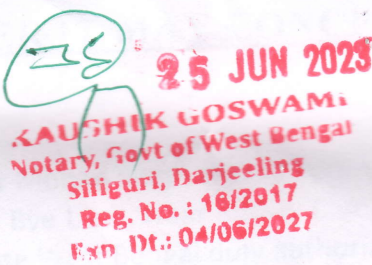 25 JUN 2025
KAUSHIK GOSWAMI
Notary, Govt of West Bengal
Siliguri, Darjeeling
Reg. No. : 18/2017
Exp. Dt.: 04/06/2027